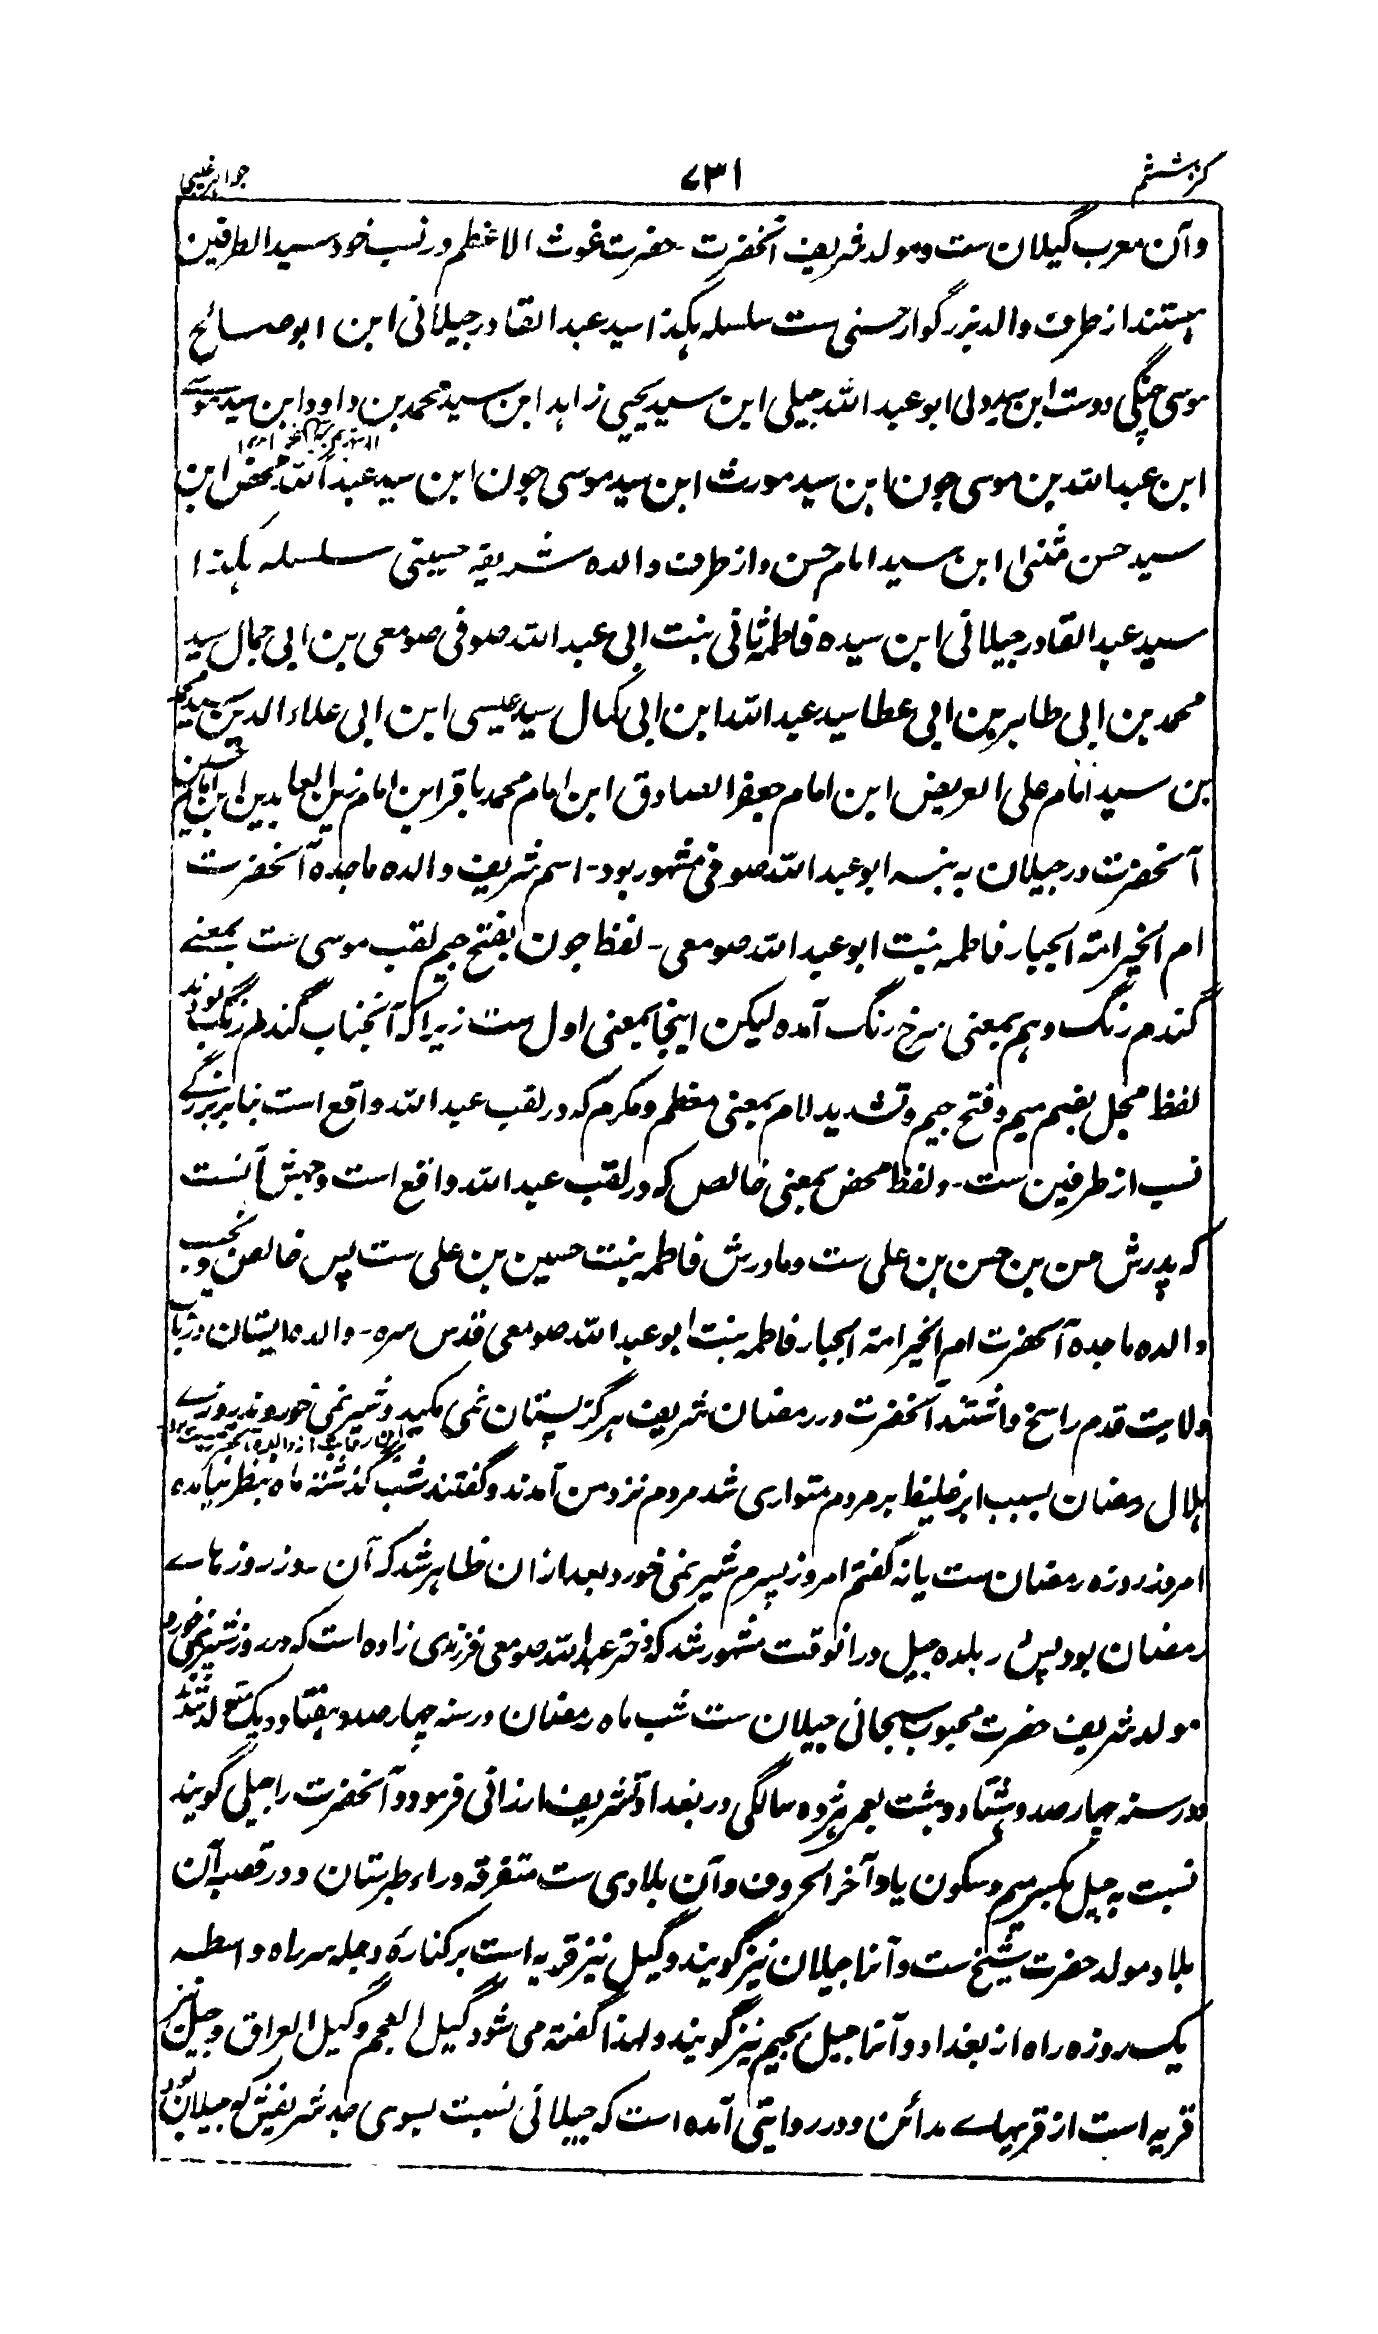 کنز ششم ۷۳۱ جواهر غیبی
وآن معرب گیلان ست ومولد شریف آنحضرت - حضرت غوث الاعظم در نسب خود سید الطرفین
هستند از طرف والد بزرگوار حسنی ست سلسله هکذا سید عبدالقادر جیلانی ابن ابو صالح
موسی جنگی دوست ابن سید ولی ابو عبدالله جیلی ابن سید یحیی زاهد ابن سید محمد بن داود ابن سید موسے
ابن عبدالله بن موسی جون ابن سید مورث ابن سید موسی جون ابن سید عبدالله محض ابن
سید حسن مثنی ابن سید امام حسن واز طرف والده شریفه حسینی سلسله هکذا
سید عبدالقادر جیلانی ابن سیده فاطمه ثانی بنت ابی عبدالله صوفی صومعی بن ابی جمال سید
محمد بن ابی طاهر بن ابی عطا سید عبدالله ابن ابی کمال سید عیسی ابن ابی علاء الدین سید محمد
بن سید امام علی العریض ابن امام جعفر الصادق ابن امام محمد باقر ابن امام زین العابدین ابن امام حسین
آنحضرت در جیلان به نبسه ابو عبدالله صوفی مشهور بود - اسم شریف والده ماجده آنحضرت
ام الخیر امة الجبار فاطمه بنت ابو عبدالله صومعی - لفظ جون بفتح جیم لقب موسی ست بمعنے
گندم رنگ وهم بمعنی سرخ رنگ آمده لیکن اینجا بمعنی اول ست زیرا که آنجناب گندم رنگ بودند
لفظ مجل بضم میم وفتح جیم وتشدید لام بمعنی معظم ومکرم که در لقب عبدالله واقع است بنابر بزرگے
نسب از طرفین ست - ولفظ محض بمعنی خالص که در لقب عبدالله واقع است وجهش آنست
که پدرش حسن بن حسن بن علی ست ومادرش فاطمه بنت حسین بن علی ست پس خالص ونجیب
والده ماجده آنحضرت ام الخیر امة الجبار فاطمه بنت ابو عبدالله صومعی قدس سره - والده ایشان در باب
ولایت قدم راسخ داشتند آنحضرت در رمضان شریف هرگز پستان نمی مکید وشیر نمی خورد ودر روزے
هلال رمضان بسبب ابر غلیظ بر مردم متواری شد مردم نزد من آمدند وگفتند شب گذشته ماه بنظر نیامده
امروز روزه رمضان ست یا نه گفتم امروز پسرم شیر نمی خورد بعد ازان ظاهر شد که آن روز روزهاے
رمضان بود پس در بلده جیل درانوقت مشهور شد که دختر عبدالله صومعی فرزندی زاده است که در روز شیر نمی خورد
مولد شریف حضرت محبوب سبحانی جیلان ست شب ماه رمضان در سنه چهار صد وهفتاد ویک متولد شدند
ودر سنه چهار صد وهشتاد وهشت بعمر هژده سالگی در بغداد تشریف ارزانی فرمود وآنحضرت را جیلی گویند
نسبت به جیل بکسر جیم وسکون یاد آخر الحروف وآن بلادی ست متفرقه وراء طبرستان ودر قصبه آن
بلاد مولد حضرت شیخ ست وآنرا جیلان نیز گویند وگیل نیز قریه است بر کناره دجله سر راه واسطه
یک روزه راه از بغداد وآنرا جیل بجیم نیز گویند ولهذا گفته می شود گیل العجم وگیل العراق وجیل نیز
قریه است از قریهاے مدائن ودر روایتی آمده است که جیلانی نسبت بسوی جد شریفش که جیلان بود